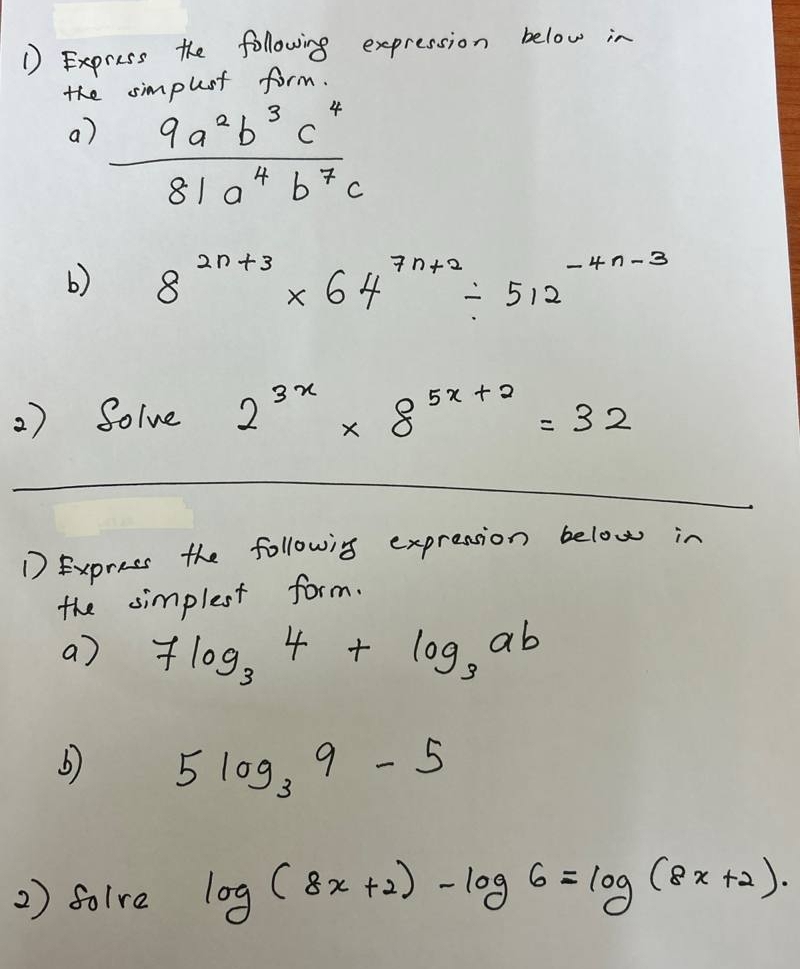 1) Express the following expression below in
the simplest form.
a) 9a²b³c⁴
81a⁴b⁷c
b) 8²ⁿ⁺³ × 64⁷ⁿ⁺² ÷ 512⁻⁴ⁿ⁻³
2) Solve 2³ˣ × 8⁵ˣ⁺² = 32
1) Express the following expression below in
the simplest form.
a) 7 log₃ 4 + log₃ ab
b) 5 log₃ 9 - 5
2) Solve log (8x+2) - log 6 = log (8x+2).